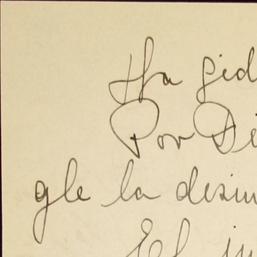 Ha gid
Por Di
gle la desin
El in